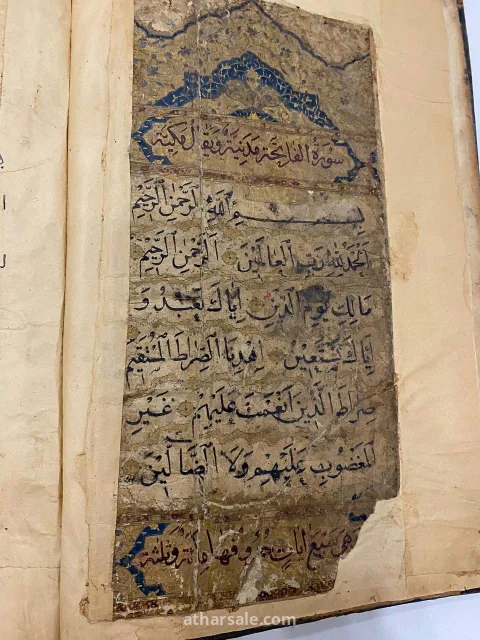 سورة الفاتحة مدنية ويقال مكية
بِسْمِ اللَّهِ الرَّحْمٰنِ الرَّحِيْمِ
اَلْحَمْدُ لِلّٰهِ رَبِّ الْعَالَمِيْنَ الرَّحْمٰنِ الرَّحِيْمِ
مَالِكِ يَوْمِ الدِّيْنِ اِيَّاكَ نَعْبُدُ وَ
اِيَّاكَ نَسْتَعِيْنُ اِهْدِنَا الصِّرَاطَ الْمُسْتَقِيْمَ
صِرَاطَ الَّذِيْنَ اَنْعَمْتَ عَلَيْهِمْ غَيْرِ
الْمَغْضُوْبِ عَلَيْهِمْ وَلَا الضَّالِّيْنَ
وهي سبع ايات حروفها مائة وثلثة
atharsale.com